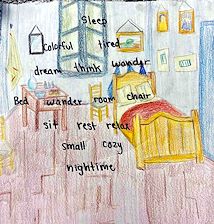 sleep
Colorful tired
dream think wander
Bed wander room chair
sit rest relax
small cozy
nightime